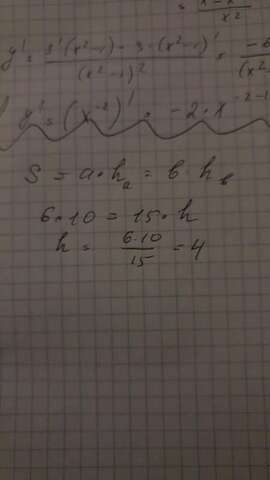 x²
y' = 3'·(x²-1) - 3·(x²-1)' / (x²-1)² = 
y' = (x⁻²)' = -2·x⁻²⁻¹
S = a·hₐ = b·h_b
6·10 = 15·h
h = 6·10 / 15 = 4